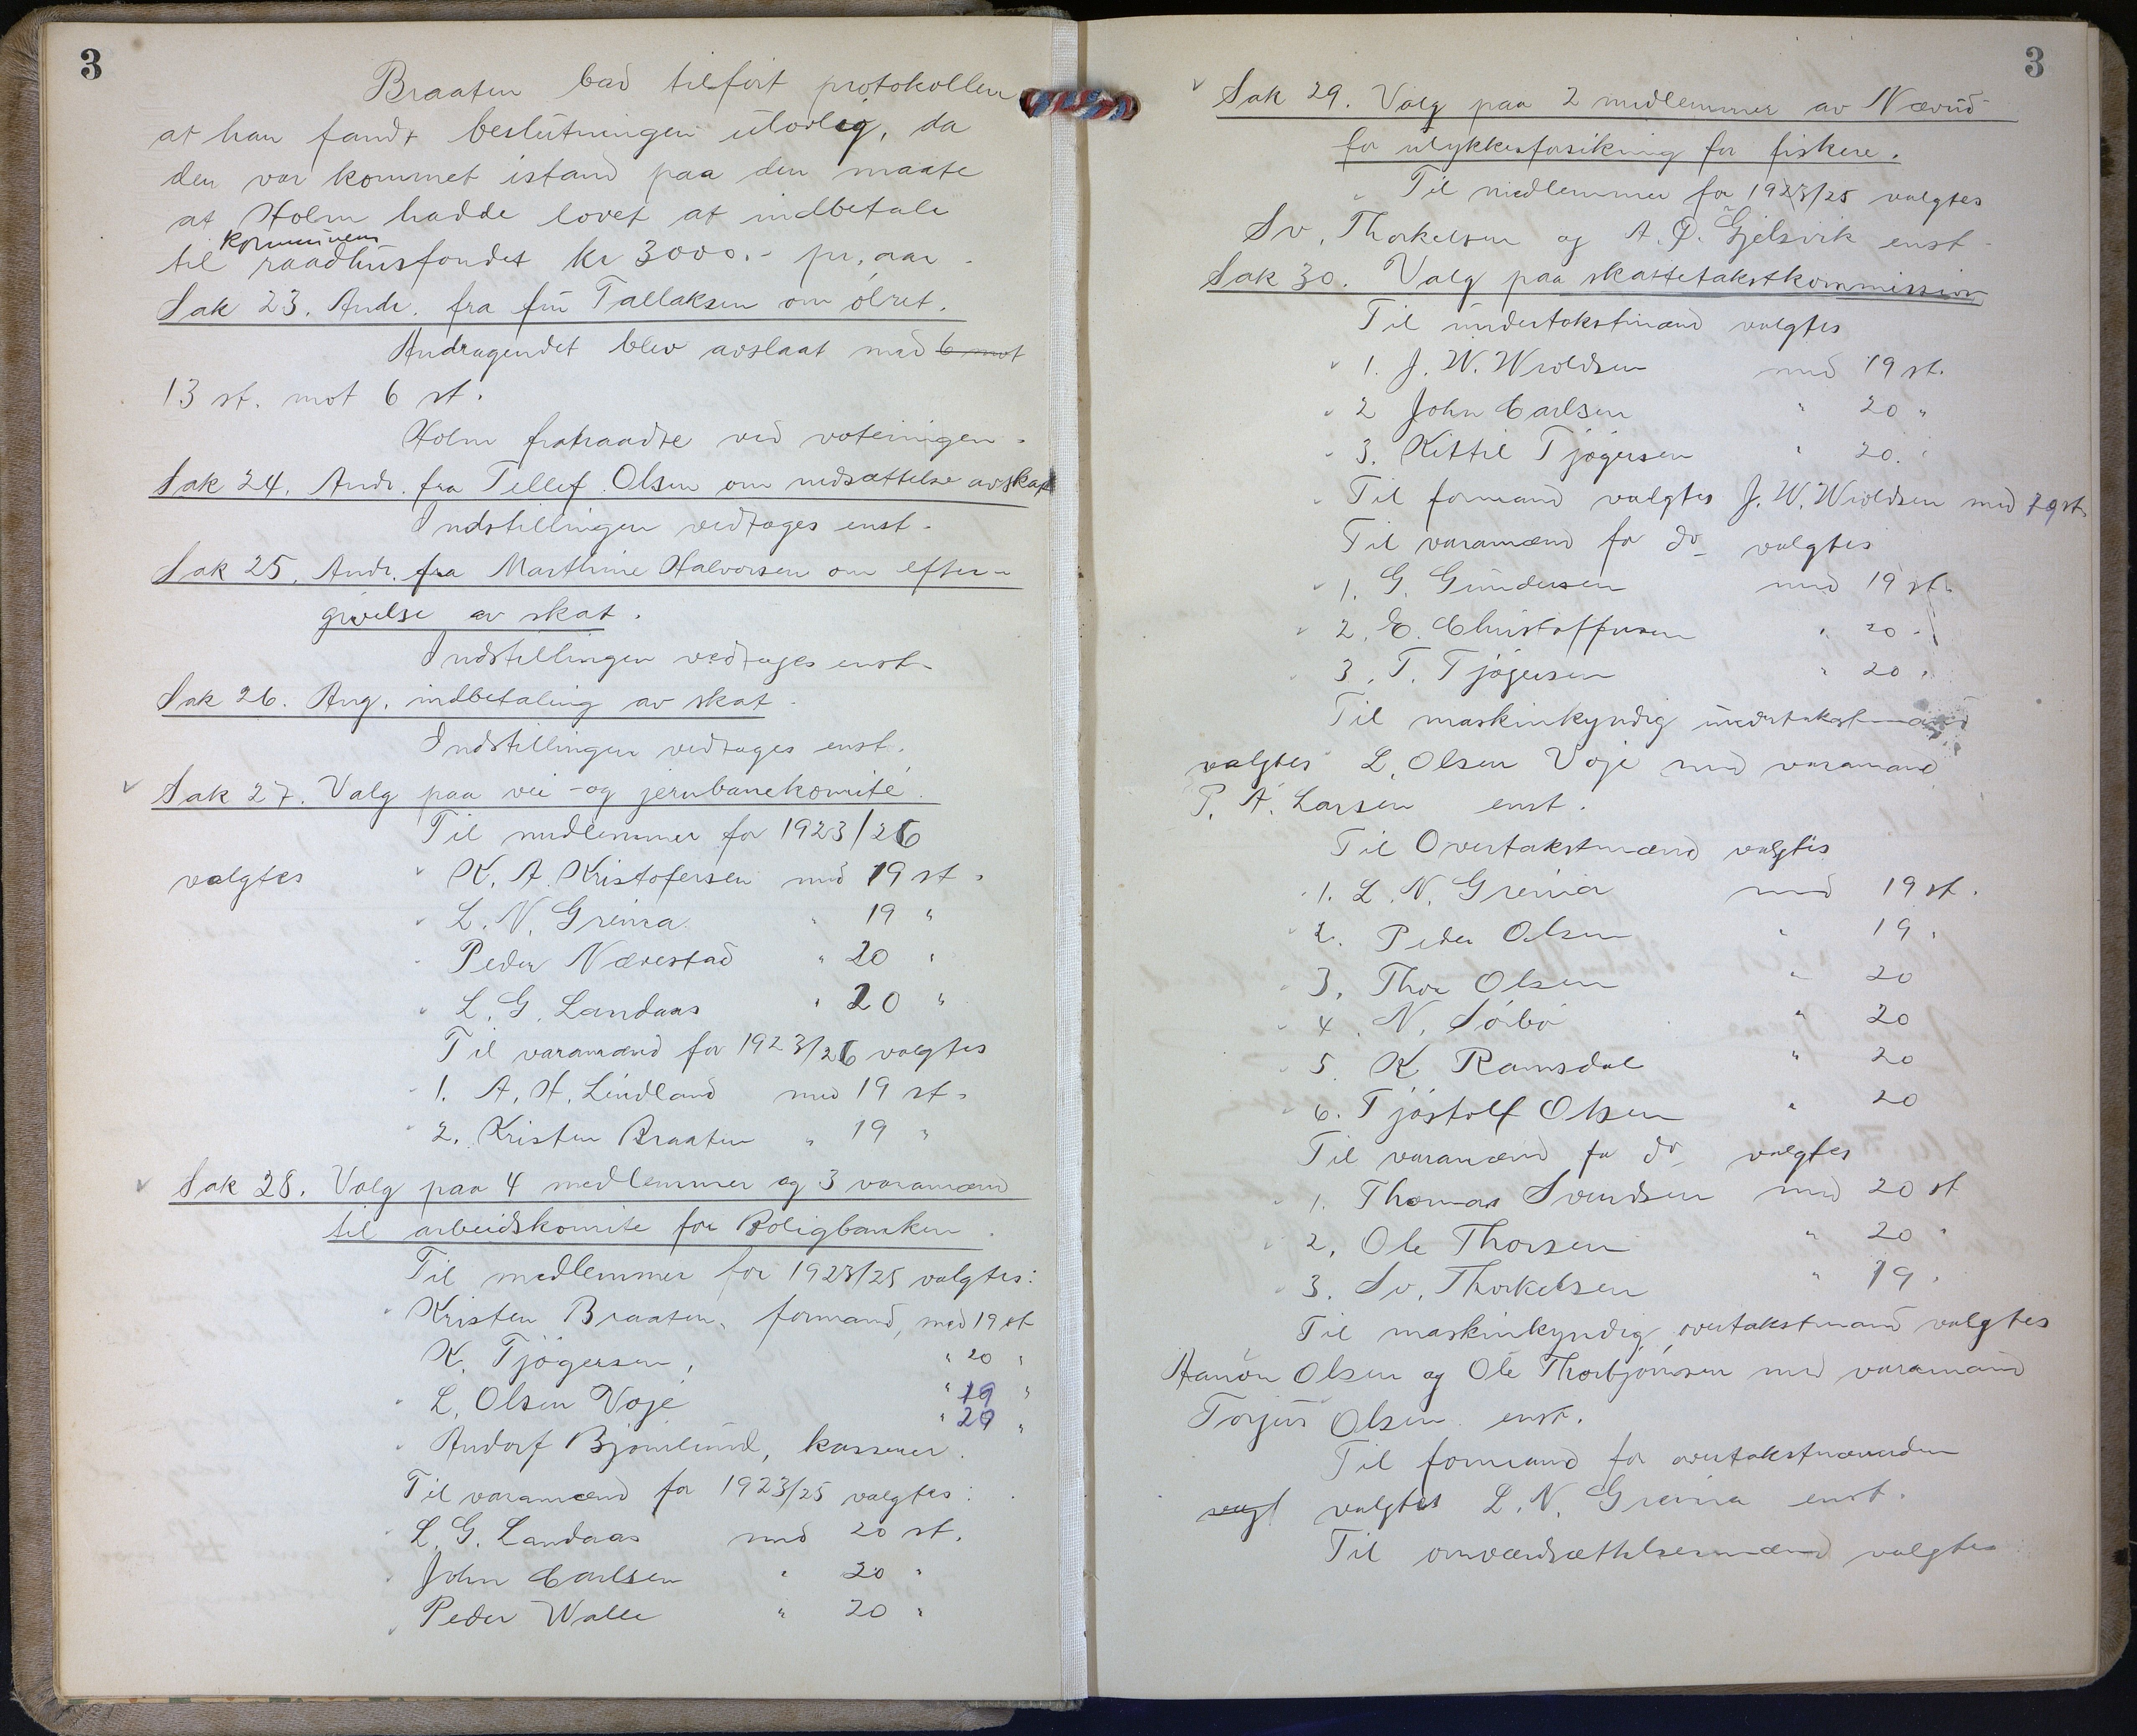 3
Braaten bad tilført protokollen
at han fandt beslutningen ulovlig, da
den var kommet istand paa den maate
at Holm hadde lovet at indbetale
kommunens
til raadhusfondet kr 3000.- pr. aar.
Sak 23. Andr. fra frú Tallaksen om ølret.
Andragendet blev avslaat med 6 mot
13 st. mot 6 st.
Holm fratraadte ved voteringen.
Sak 24. Andr. fra Tellef Olsen om nedsættelse av skat
Indstillingen vedtages enst.
Sak 25. Andr. fra Marthine Halvorsen om efter-
givelse av skat.
Indstillingen vedtages enst.
Sak 26. Ang. indbetaling av skat.
Indstillingen vedtages enst.
Sak 27. Valg paa vei- og jernbanekomité.
Til medlemmer for 1923/26
valgtes K. A. Kristofersen med 19 st.
L. N. Greivra " 19 "
Peder Nævestad " 20 "
L. G. Landaas " 20 "
Til varamænd for 1923/26 valgtes
1. A. H. Lindland med 19 st.
2. Kristen Braaten " 19 "
Sak 28. Valg paa 4 medlemmer og 3 varamænd
til arbeidskomite for Boligbanken.
Til medlemmer for 1923/25 valgtes:
Kristen Braaten, formand, med 19 st
K. Tjøgersen, " 20 "
L. Olsen Voje " 19 "
" 20 "
Andorf Bjørnlund, kasserer.
Til varamænd for 1923/25 valgtes:
L. G. Landaas med 20 st.
John Carlsen " 20 "
Peder Walle " 20 "
3
Sak 29. Valg paa 2 medlemmer av Nævnd
for ulykkesforsikring for fiskere.
Til medlemmer for 1923/25 valgtes
Sv. Thorkelsen og A. O. Gjelsvik enst.
Sak 30. Valg paa skattetakstkommission
Til undertakstmænd valgtes
1. J. W. Wroldsen med 19 st.
2 John Carlsen " 20 "
3. Kittil Tjøgersen " 20. "
Til formand valgtes J. W. Wroldsen med 19 st.
Til varamænd for do valgtes
1. G. Gundersen med 19 st.
2. E. Christoffersen " 20 "
3. T. Tjøgersen " 20 "
Til maskinkyndig undertakstmand
valgtes L. Olsen Voje med varamand
P. A. Larsen enst.
Til Overtakstmænd valgtes
1. L. N. Greivra med 19 st.
2. Peder Olsen " 19 "
3. Thor Olsen " 20
4. N. Sørbø " 20
5. K. Ramsdal " 20
6. Tjøstolf Olsen " 20
Til varamænd for do valgtes
1. Thomas Svendsen med 20 st
2. Ole Thorsen " 20 "
3. Sv. Thorkelsen " 19 "
Til maskinkyndig overtakstmand valgtes
Hanon Olsen og Ole Thorbjørnsen med varamand
Torjus Olsen enst.
Til formand for overtakstnævnden
valgt valgtes L. N. Greivra enst.
Til omværdsættelsesmænd valgtes